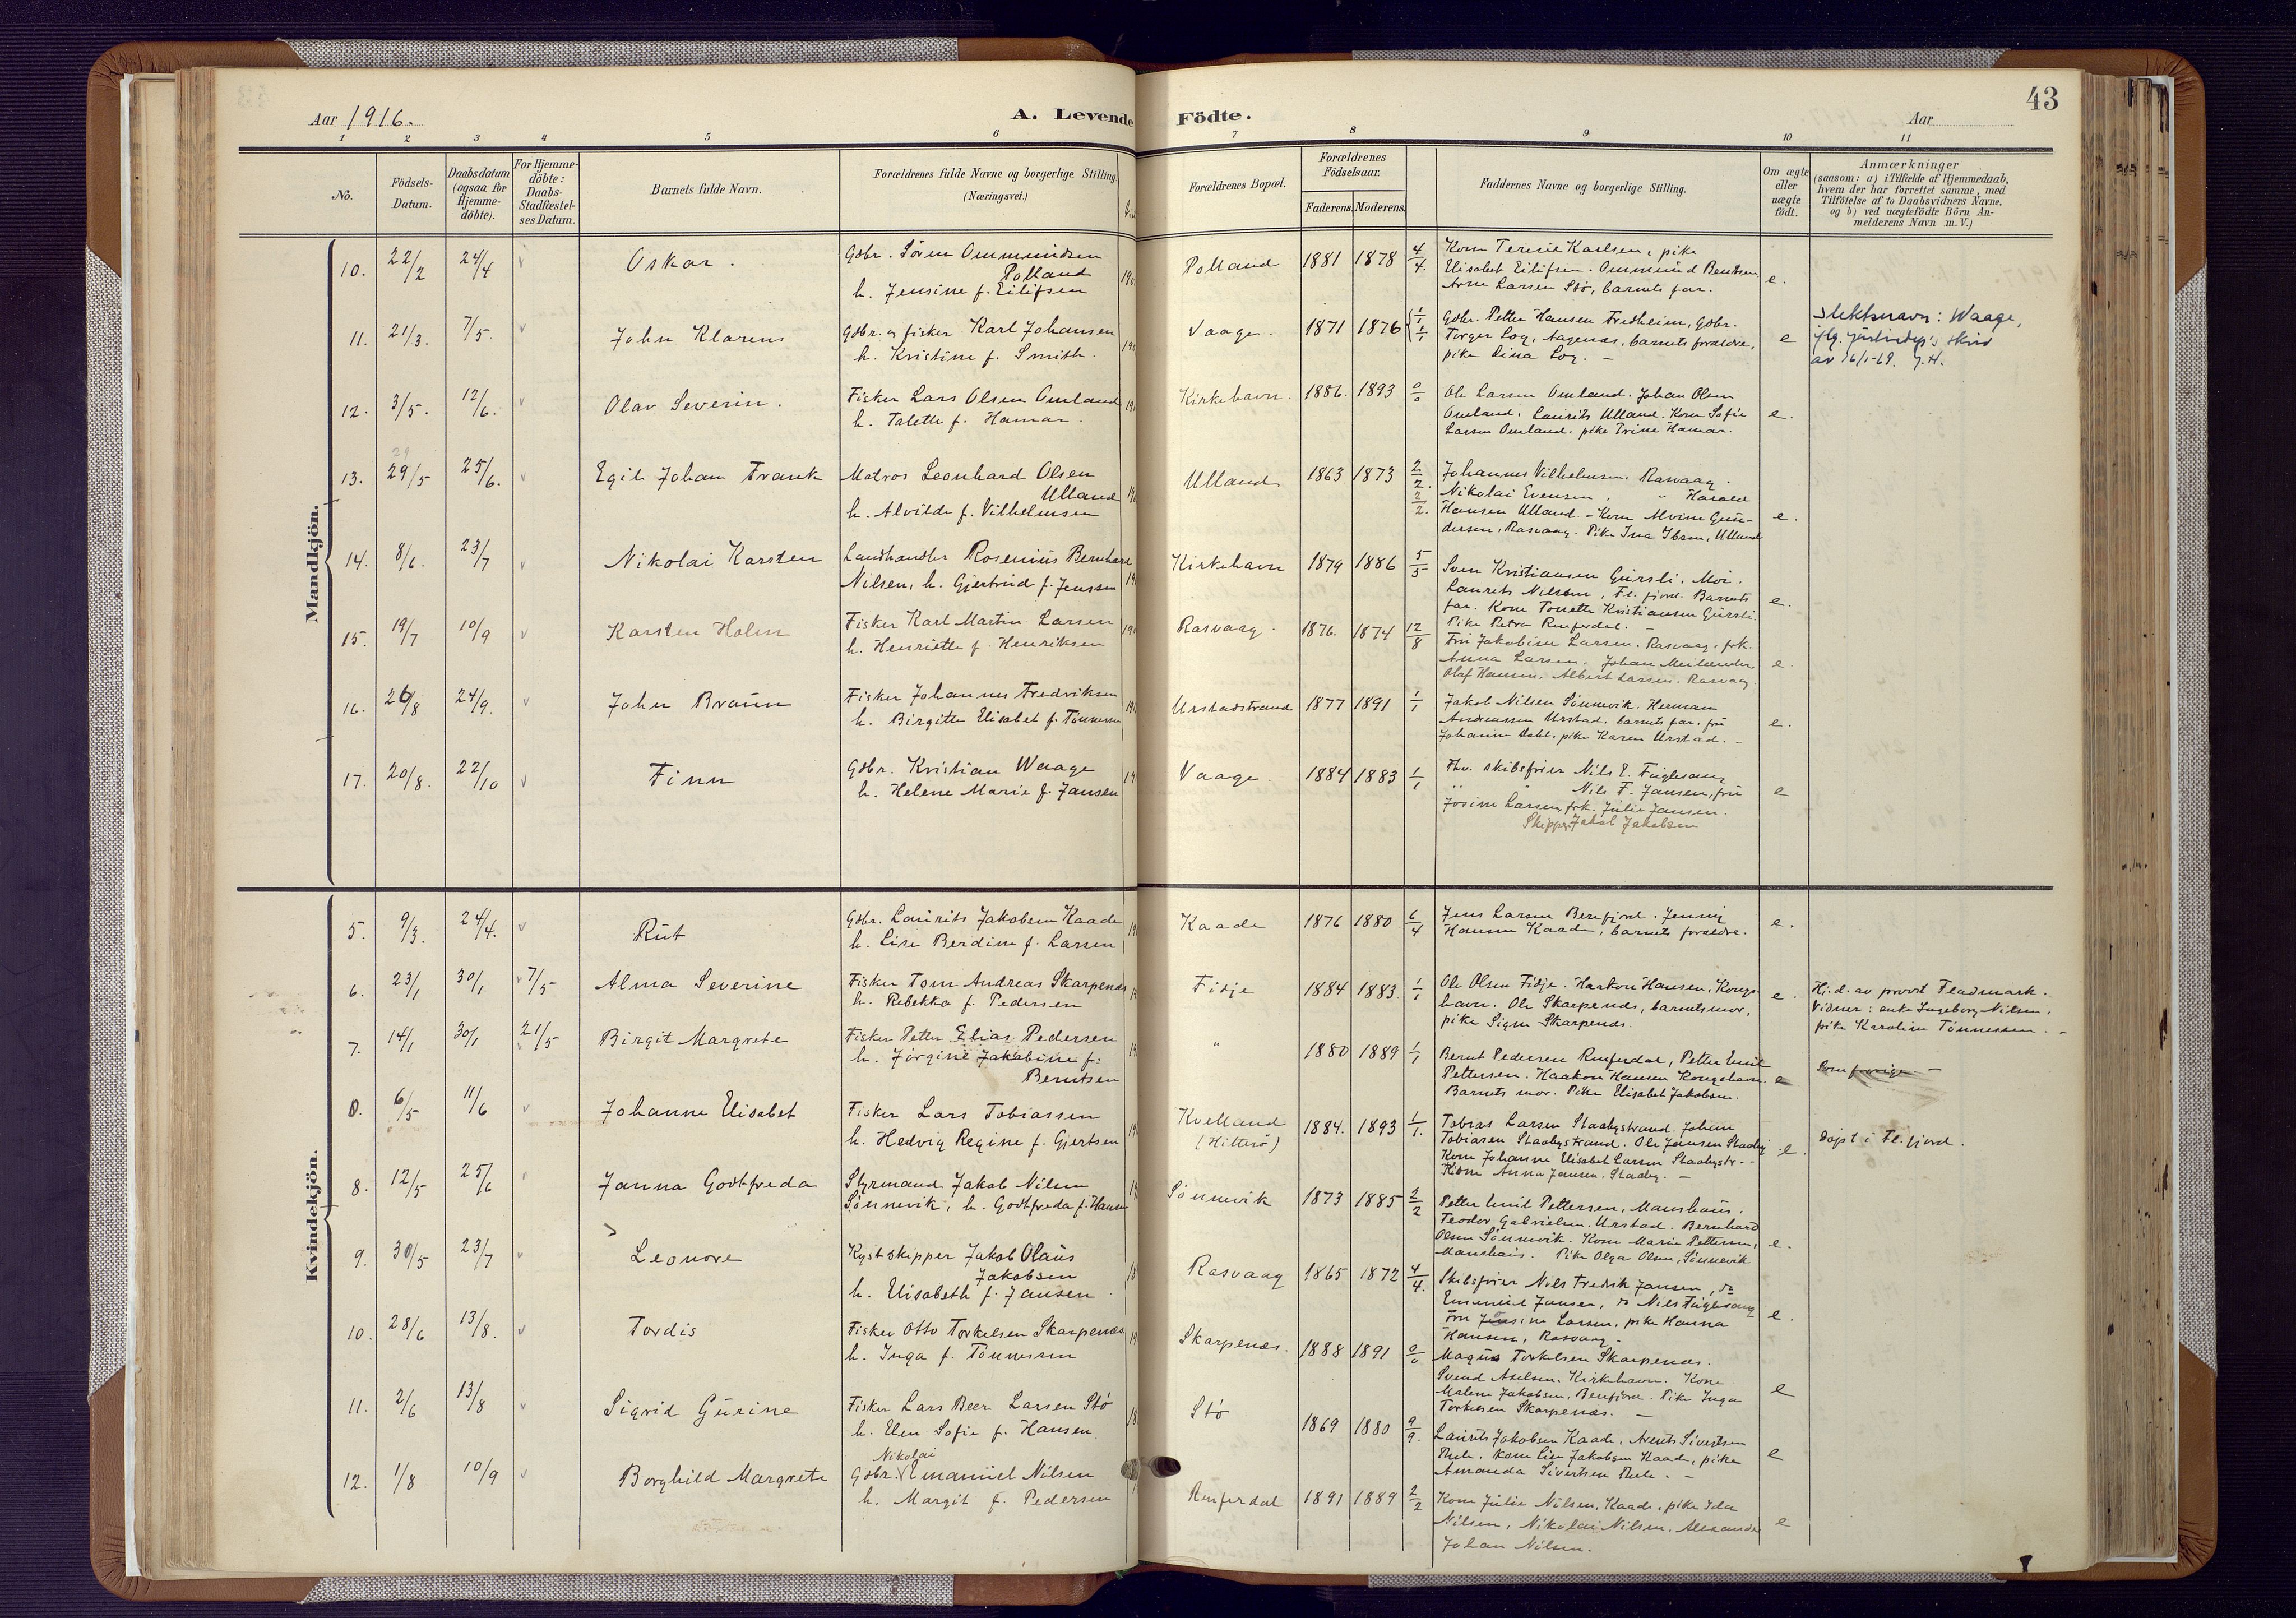 Aar 1916.
A. Levende Födte.
43
Aar
1 2 3 4 5 6 7 8 9 10 11
No.
Födsels-
Datum.
Daabsdatum
(ogsaa for
Hjemme-
döbte).
For Hjemme-
döbte:
Daabs-
Stadfæstel-
ses Datum.
Barnets fulde Navn.
Forældrenes fulde Navne og borgerlige Stilling
(Næringsvei.)
Forældrenes Bopæl.
Forældrenes
Födselsaar.
Faderens. Moderens.
Faddernes Navne og borgerlige Stilling.
Om ægte
eller
uægte
födt.
Anmærkninger
(saasom: a) i Tilfælde af Hjemmedaab,
hvem der har forrettet samme, med
Tilföielse af to Daabsvidners Navne.
og b) ved uægtefödte Börn An-
melderens Navn m. V.)
Mandkjön.
10. 22/2 24/4 v Oskar. Gdbr. Søren Ommundsen
Polland
h. Jensine f. Eilifsen
Polland 1881 1878 4/4. Kone Teresie Karlsen, pike
Elisabet Eilifsen. Ommund Bentsen
Arne Larsen Stø, barnets far. e.
11. 21/3. 7/5. v John Klarens Gdbr. og fisker Karl Johansen
h. Kristine f. Smith.
Vaage. 1871 1876 1/1 1/1 Gdbr. Petter Hansen Fredheim, Gdbr.
Torger Log, Aagenæs, barnets forældre,
pike Dina Log. – e
Slektsnavn: Waage,
av 16/1-69. J.H.
12. 3/5. 12/6. v Olav Severin. Fisker Lars Olsen Omland
h. Talette f. Hamar.
Kirkehavn. 1886. 1893 0/0 Ole Larsen Omland. Johan Olsen
Omland. Laurits Ulland. Kone Sofie
Larsen Omland. pike Trine Hamar. e.
13. 29/5 25/6. v Egil Johan Frank Matros Leonhard Olsen
Ulland
h. Alvilde f. Vilhelmsen
Ulland 1863 1873 2/2. 2/2. Johannes Vilhelmsen. Rasvaag.
Nikolai Evensen, " Harald
Hansen Ulland. – Kone Alvine Gun-
dersen, Rasvaag. Pike Ina Ibsen, Ulland e.
14. 8/6. 23/7 v Nikolai Karsten Landhandler Rosenius Bernhard
Nilsen, h. Gjertrud f. Jenssen
Kirkehavn 1879 1886 5/5 Sven Kristiansen Gursli, Moi.
Laurits Nilsen, Fl. fjord. Barnets
far. Kone Tonette Kristiansen Gursli.
Pike Petra Renferdal. – e.
15. 19/7 10/9 v Karsten Holm Fisker Karl Martin Larsen
h. Henriette f. Henriksen
Rasvaag. 1876. 1874 12/8 Fru Jakobine Larsen. Rasvaag, frk.
Anna Larsen, Johan Meilænder,
Olaf Hansen, Albert Larsen. Rasvaag. e.
16. 26/8 24/9. v John Braun Fisker Johannes Fredriksen
h. Birgitte Elisabet f. Tønnesen
Urstadstrand 1877 1891 1/1 Jakob Nilsen Sønnevik. Herman
Andreassen Urstad, barnets far, fru
Johanne Dahl, pike Karen Urstad. – e.
17. 20/8. 22/10 v Finn Gdbr. Kristian Waage
h. Helene Marie f. Jansen
Vaage. 1884 1883 1/1 Fhv. skibsfører Nils E. Fuglesang
" " Nils F. Jansen, fru
Josine Larsen, frk. Julie Jansen.
Skipper Jakob Jakobsen e
Kvindekjön.
5. 9/3. 24/4. v Rut Gdbr. Laurits Jakobsen Kaade
h. Lise Berdine f. Larsen
Kaade 1876 1880 6/4 Jens Larsen Berefjord. Jenny
Hansen Kaade, barnets forældre. e.
6. 23/1 30/1 v 7/5 Alma Severine Fisker Tom Andreas Skarpenæs
h. Rebekka f. Pedersen
Fidje 1884 1883. 1/1 Ole Olsen Fidje. Haakon Hansen, Kongs-
havn. Ole Skarpenæs, barnets mor,
pike Signe Skarpenæs. e.
Hj.d. av provst Fladmark.
Vidner: enke Ingeborg Nilsen,
pike Karoline Tønnessen. –
7. 14/1 30/1 21/5 Birgit Margrete Fisker Petter Elias Pedersen
h. Jørgine Jakobine f.
Berntsen
" 1880 1889 1/1 Bernt Pedersen Renferdal, Petter Emil
Pettersen. Haakon Hansen Kongshavn.
Barnets mor. Pike Elisabet Jakobsen. e
Som forrige. –
8. 6/5 11/6 v Johanne Elisabet Fisker Lars Tobiassen
h. Hedvig Regine f. Gjertsen
Kvelland
(Hitterø) 1884. 1893 1/1. Tobias Larsen Staalystrand. Johan
Tobiasen Staalystrand. Ole Jansen Staaly
Kone Johanne Elisabet Larsen Staalystr. –
Kone Anna Jansen, Staaly. – e.
Døpt i Fl. fjord.
8. 12/5 25/6 Janna Godtfreda Styrmand Jakob Nilsen
Sønnevik, h. Godtfreda f. Hansen
Sønnevik 1873 1885 2/2 Petter Emil Pettersen, Manshaus.
Teodor Gabrielsen. Urstad. Bernhard
Olsen Sønnevik. Kone Marie Pettersen,
Manshaus. Pike Olga Olsen, Sønnevik e.
9. 30/5 23/7 v Leonore Kystskipper Jakob Olaus
Jakobsen
h. Elisabeth f. Jansen.
Rasvaag 1865 1872 4/4. Skibsfører Nils Fredrik Jansen, do
Emanuel Jansen, do Nils Fuglesang
Fru Josine Larsen, pike Hanna
Hansen, Rasvaag. e.
10. 28/6 13/8. v Tordis Fisker Otto Torkelsen Skarpenæs
h. Inga f. Tønnesen
Skarpenæs. 1888 1891 0/0 Magus Torkelsen Skarpenæs.
Svend Axelsen. Kirkehavn. Kone
Malene Jakobsen, Berefjord. Pike Inga
Torkelsen Skarpenæs. – e
11. 2/6 13/8 v Sigrid Gurine Fisker Lars Beer Larsen Stø
h. Elen Sofie f. Hansen.
Stø 1869 1880 9/9. Laurits Jakobsen Kaade, Arent Sivertsen
Thele. Kone Lise Jakobsen Kaade, pike
Amanda Sivertsen Thele. – e
12. 1/8 10/9 v Borghild Margrete Nikolai
Gdbr. Emanuel Nilsen
h. Margit f. Pedersen
Renferdal 1891 1889 2/2 Kone Julie Nilsen, Kaade, pike Ida
Nilsen, Nikolai Nilsen, Alexander
Johan Nilsen. e